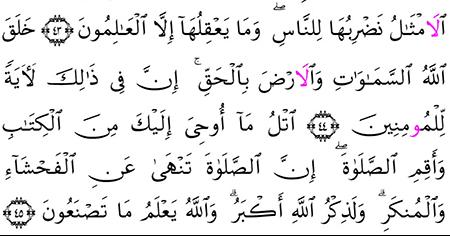 ٱلَامْثَٰلُ نَضْرِبُهَا لِلنَّاسِۖ وَمَا يَعْقِلُهَآ إِلَّا ٱلْعَٰلِمُونَ ۝٤٣ خَلَقَ
ٱللَّهُ ٱلسَّمَٰوَٰتِ وَٱلَارْضَ بِٱلْحَقِّۚ إِنَّ فِى ذَٰلِكَ لَأَيَةً
لِّلْمُومِنِينَ ۝٤٤ ٱتْلُ مَآ أُوحِىَ إِلَيْكَ مِنَ ٱلْكِتَٰبِ
وَأَقِمِ ٱلصَّلَوٰةَۖ إِنَّ ٱلصَّلَوٰةَ تَنْهَىٰ عَنِ ٱلْفَحْشَآءِ
وَٱلْمُنكَرِۗ وَلَذِكْرُ ٱللَّهِ أَكْبَرُۗ وَٱللَّهُ يَعْلَمُ مَا تَصْنَعُونَ ۝٤٥